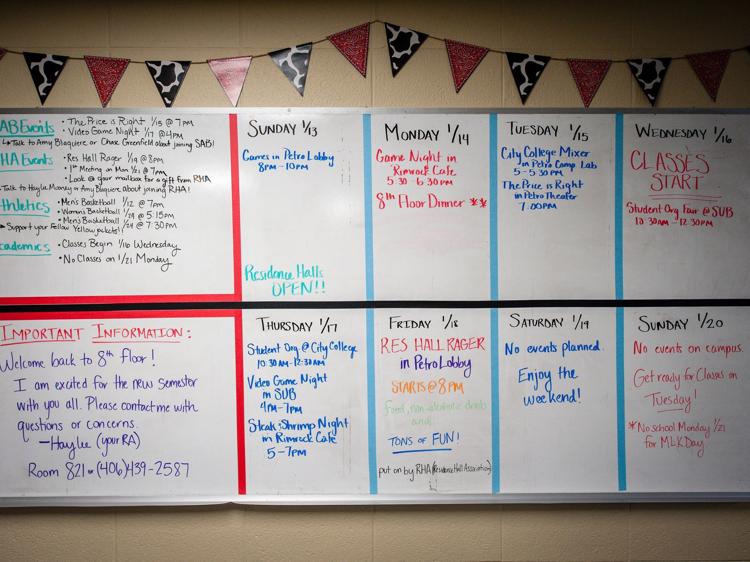 AB Events
• The Price is Right 1/15 @ 7pm
• Video Game Night 1/17 @ 4pm
Talk to Amy Blaquiere or Chase Greenfield about joining SAB!
HA Events
• Res Hall Rager 1/19 @ 8pm
• 1st Meeting on Mon 1/21 @ 7pm
• Look @ your mailbox for a gift from RHA
Talk to Haylee Mooney or Amy Blaquiere about joining RHA!
thletics
• Men's Basketball 1/12 @ 7pm
Women's Basketball 1/24 @ 5:15pm
• Men's Basketball 1/24 @ 7:30pm
Support your Fellow Yellowjackets!
cademics
• Classes Begin 1/16 Wednesday
• No Classes on 1/21 Monday
SUNDAY 1/13
Games in Petro Lobby
8PM-10PM
Residence Halls
OPEN!!
MONDAY 1/14
Game Night in
Rimrock Cafe
5:30-6:30PM
8th Floor Dinner **
TUESDAY 1/15
City College Mixer
in Petro Comp Lab
5-5:30PM
The Price is Right
in Petro Theater
7:00PM
WEDNESDAY 1/16
CLASSES
START
Student Org Fair @ SUB
10:30AM-12:30PM
IMPORTANT INFORMATION:
Welcome back to 8th floor!
I am excited for the new semester
with you all. Please contact me with
questions or concerns.
-Haylee (your RA)
Room 821 or (406)439-2587
THURSDAY 1/17
Student Org @ City College
10:30AM-12:30AM
Video Game Night
in SUB
4PM-7PM
Steak & Shrimp Night
in Rimrock Cafe
5-7PM
FRIDAY 1/18
RES HALL RAGER
in Petro Lobby
STARTS @ 8PM
Food, non-alcoholic drinks
and
TONS OF FUN!
put on by RHA (Residence Hall Association)
SATURDAY 1/19
No events planned.
Enjoy the
weekend!
SUNDAY 1/20
No events on campus.
Get ready for Classes on
Tuesday!
*No school Monday 1/21
for MLK Day